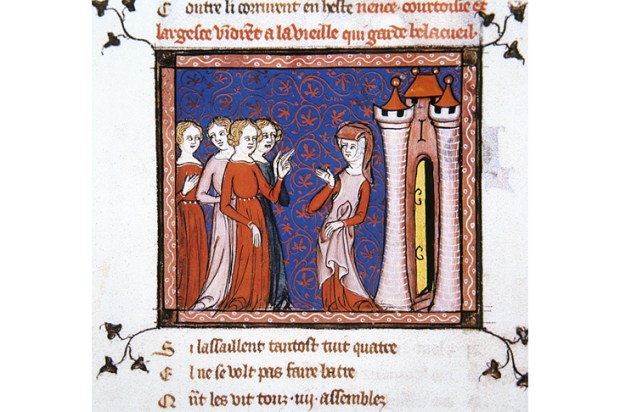 C ontre li en heste nence·courtoisie et
largesce vindrēt a la vieille qui garde belacueil.
S i lassaillent tantost tuit quatre
E l ne se volt pas faire batre
Q ñt les vit touz ·iiij· assemblez